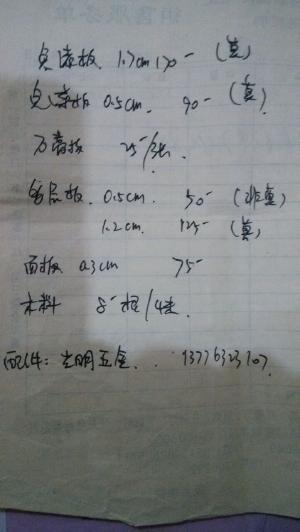 免漆板 1.7cm 170- (真)
免漆板 0.5cm. 90- (真)
石膏板 25-/张.
多层板. 0.5cm. 50- (非真)
1.2cm. 125- (真)
面板 0.3cm 75-
木料 8-根/4米
配件: 光明五金.. 13776323707